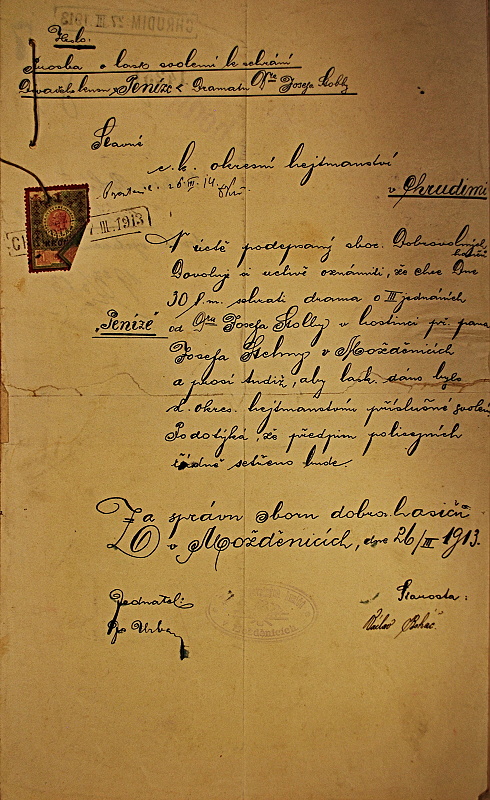 CHRUDIM 27 III 1913
Heslo:
Prosba o lask. svolení k sehrání
Divadel. kusu „Peníze“ Dramatu Dra Josefa Štolby
Slavné
c. k. okresní hejtmanství
v Chrudimi
26/III. 14
III. 1913
V úctě podepsaný sbor. Dobrovolných hasičů
Dovoluje si uctivě oznámiti, že chce Dne
30 t. m. sehrati drama o III jednáních
„Peníze“ od Dra Josefa Štolby v hostinci p. pana
Josefa v Možděnicích
a prosí tudíž, aby lask. dáno bylo
c. okres. hejtmanstvím příslušné svolení
Podotýká, že předpisu policejních
řádně šetřeno bude.
Za správu sboru dobro. hasičů
v Možděnicích, dne 26/III 1913.
Jednatel: Starosta:
Urban Václav